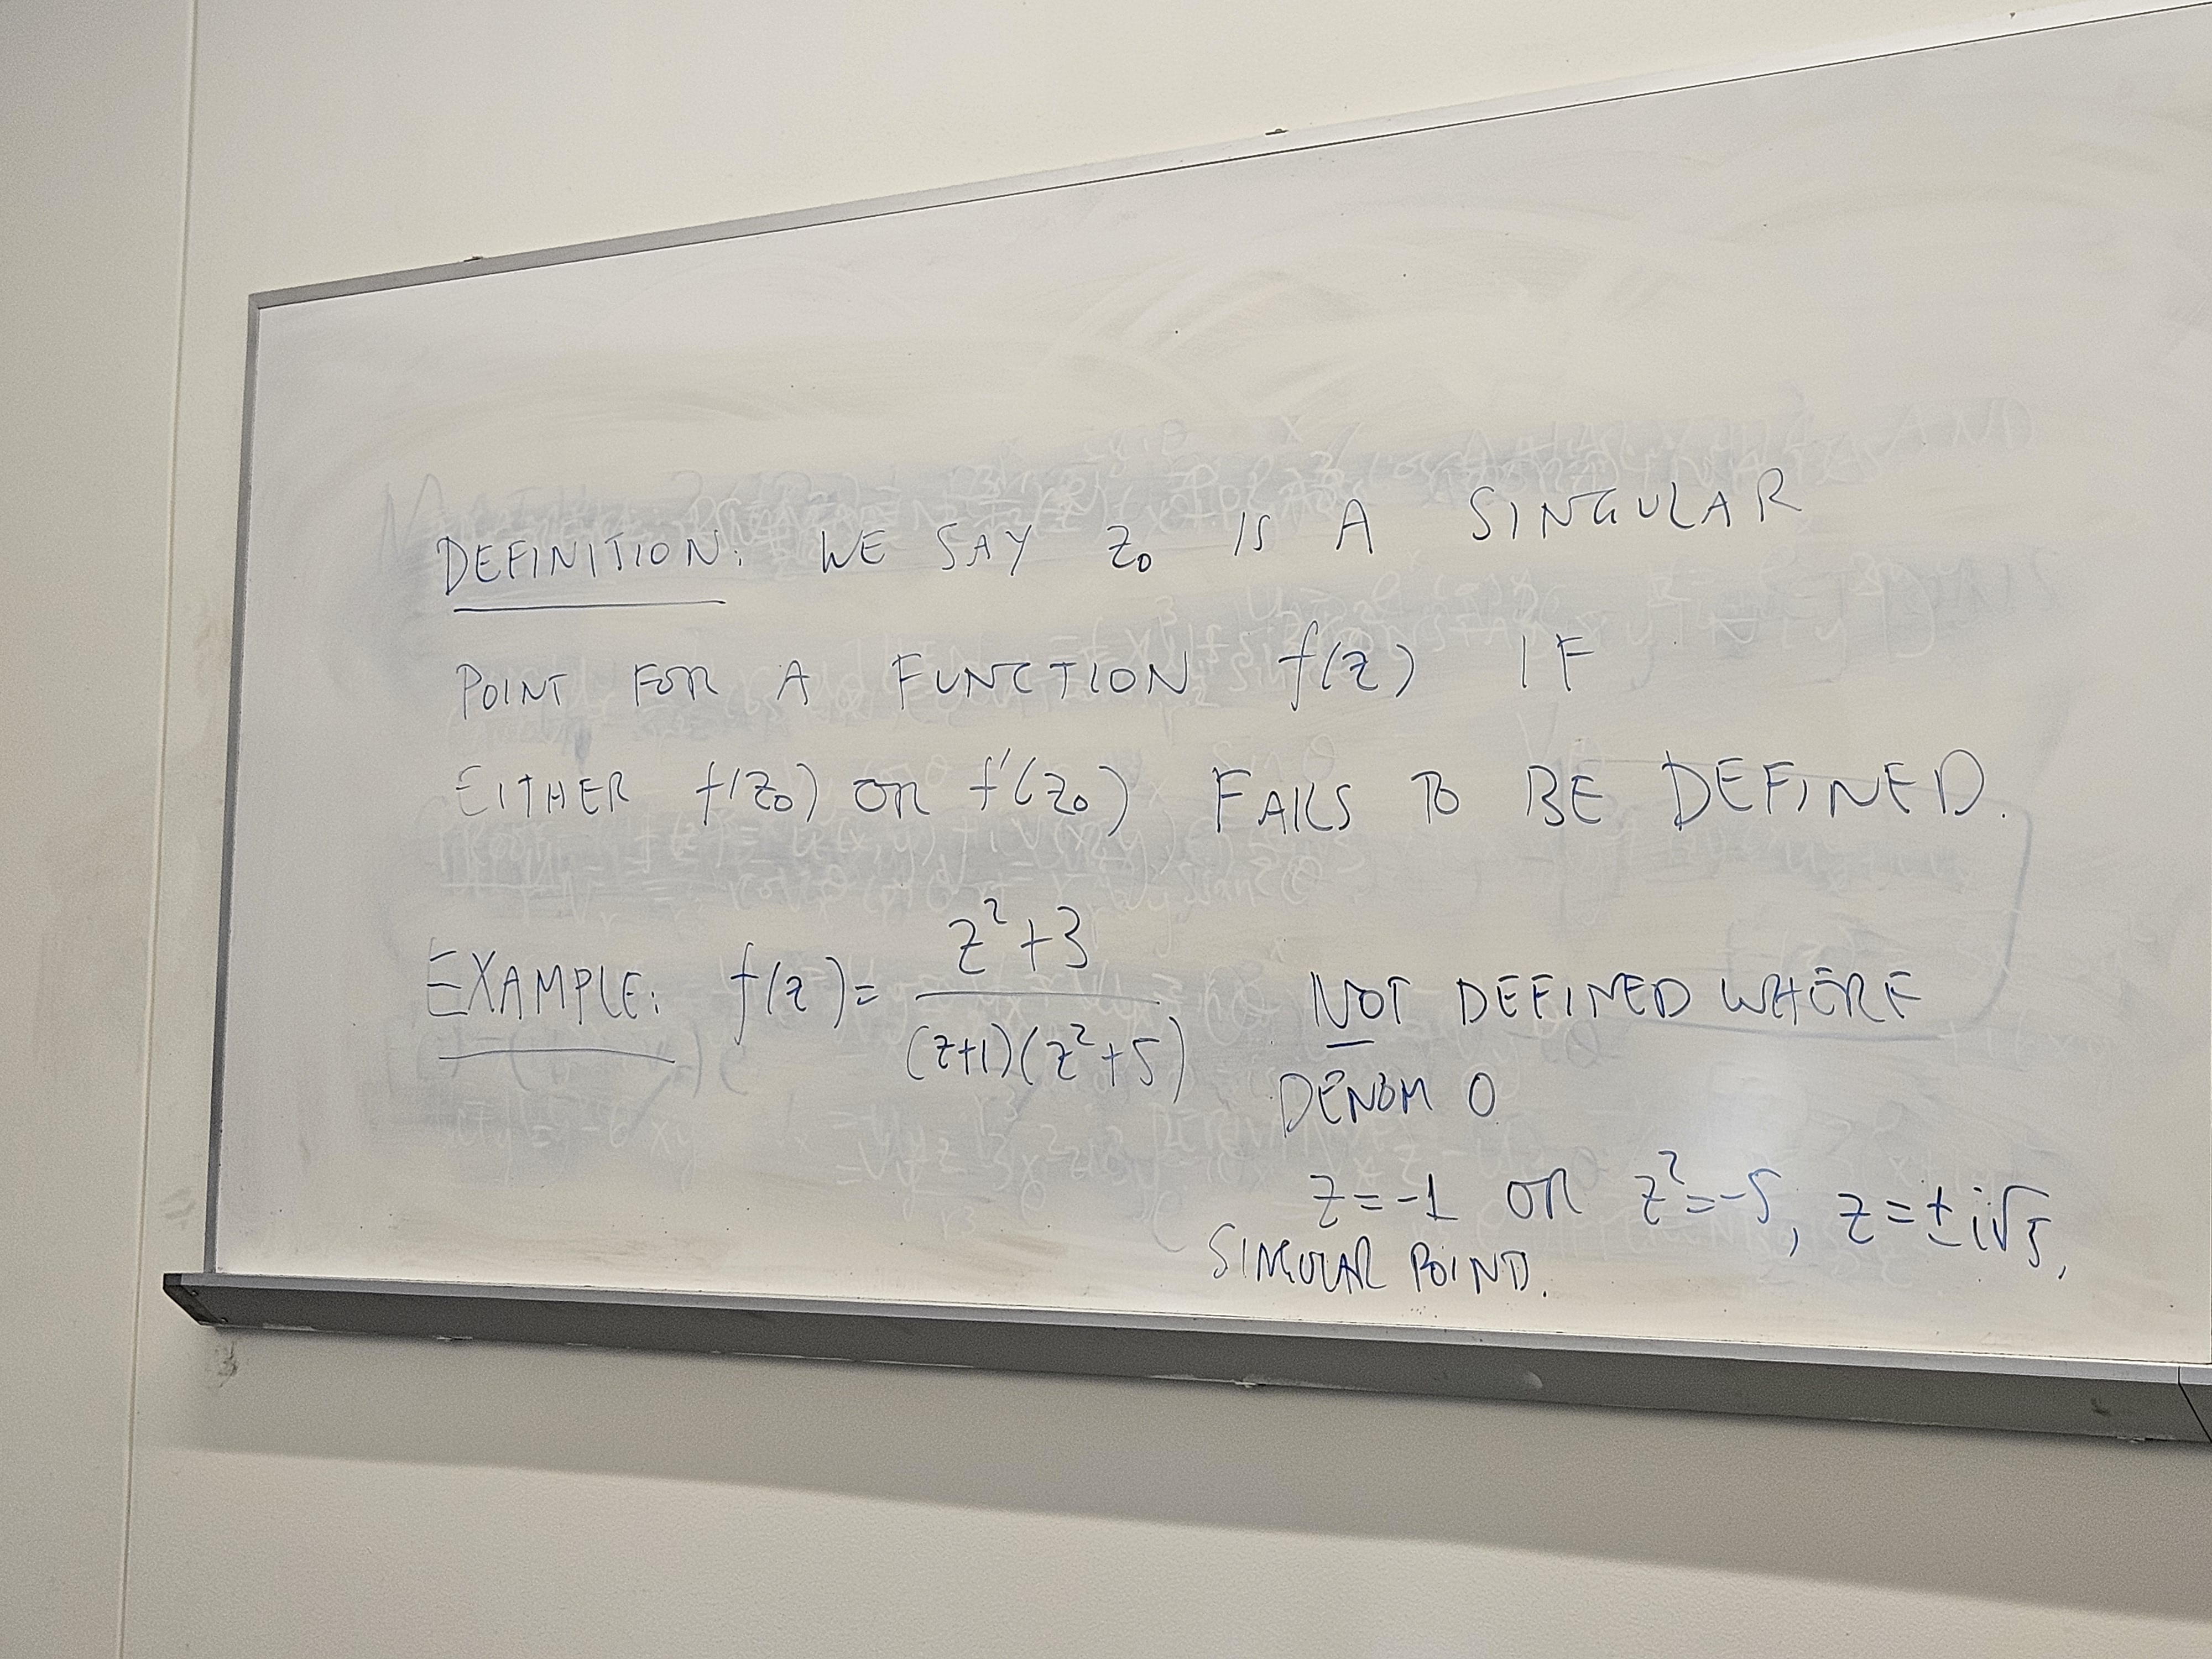 DEFINITION: WE SAY z₀ IS A SINGULAR
POINT FOR A FUNCTION f(z) IF
EITHER f(z₀) OR f'(z₀) FAILS TO BE DEFINED.
EXAMPLE: f(z) = (z²+3)/((z+1)(z²+5)) NOT DEFINED WHERE
DENOM 0
z=-1 OR z²=-5, z=±i√5.
SINGULAR POINT.